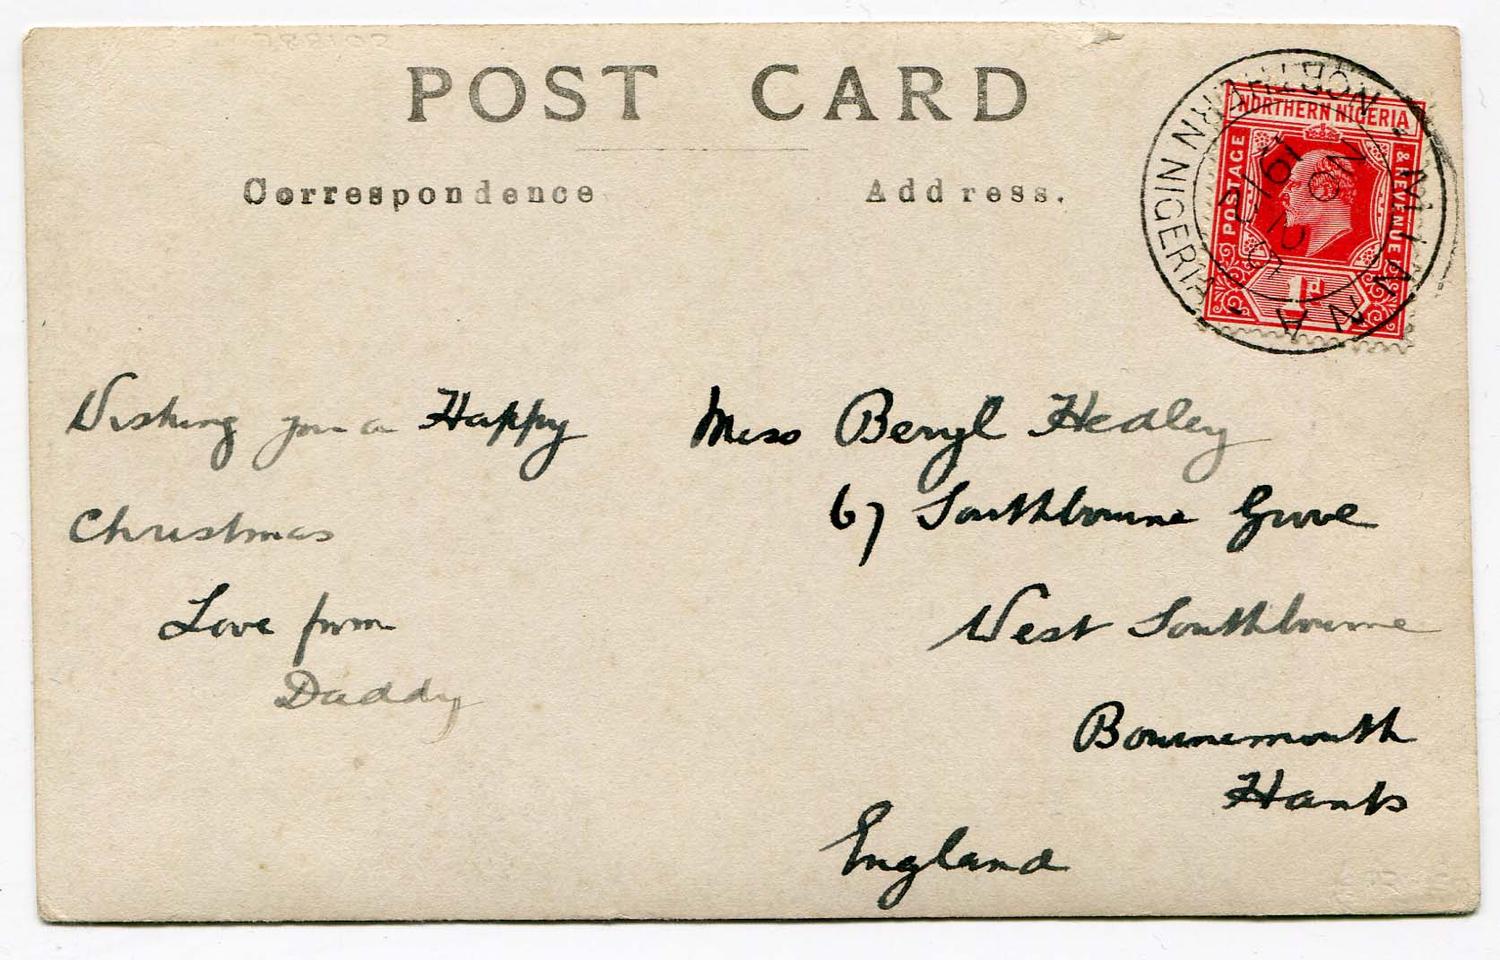 POST CARD
Correspondence
Address.
NORTHERN NIGERIA
POSTAGE
& REVENUE
1d
MINNA
NORTHERN NIGERIA
NO
1912
Wishing you a Happy
Christmas
Love from
Daddy
Miss Beryl Hedley
67 Southbourne Grove
West Southbourne
Bournemouth
Hants
England